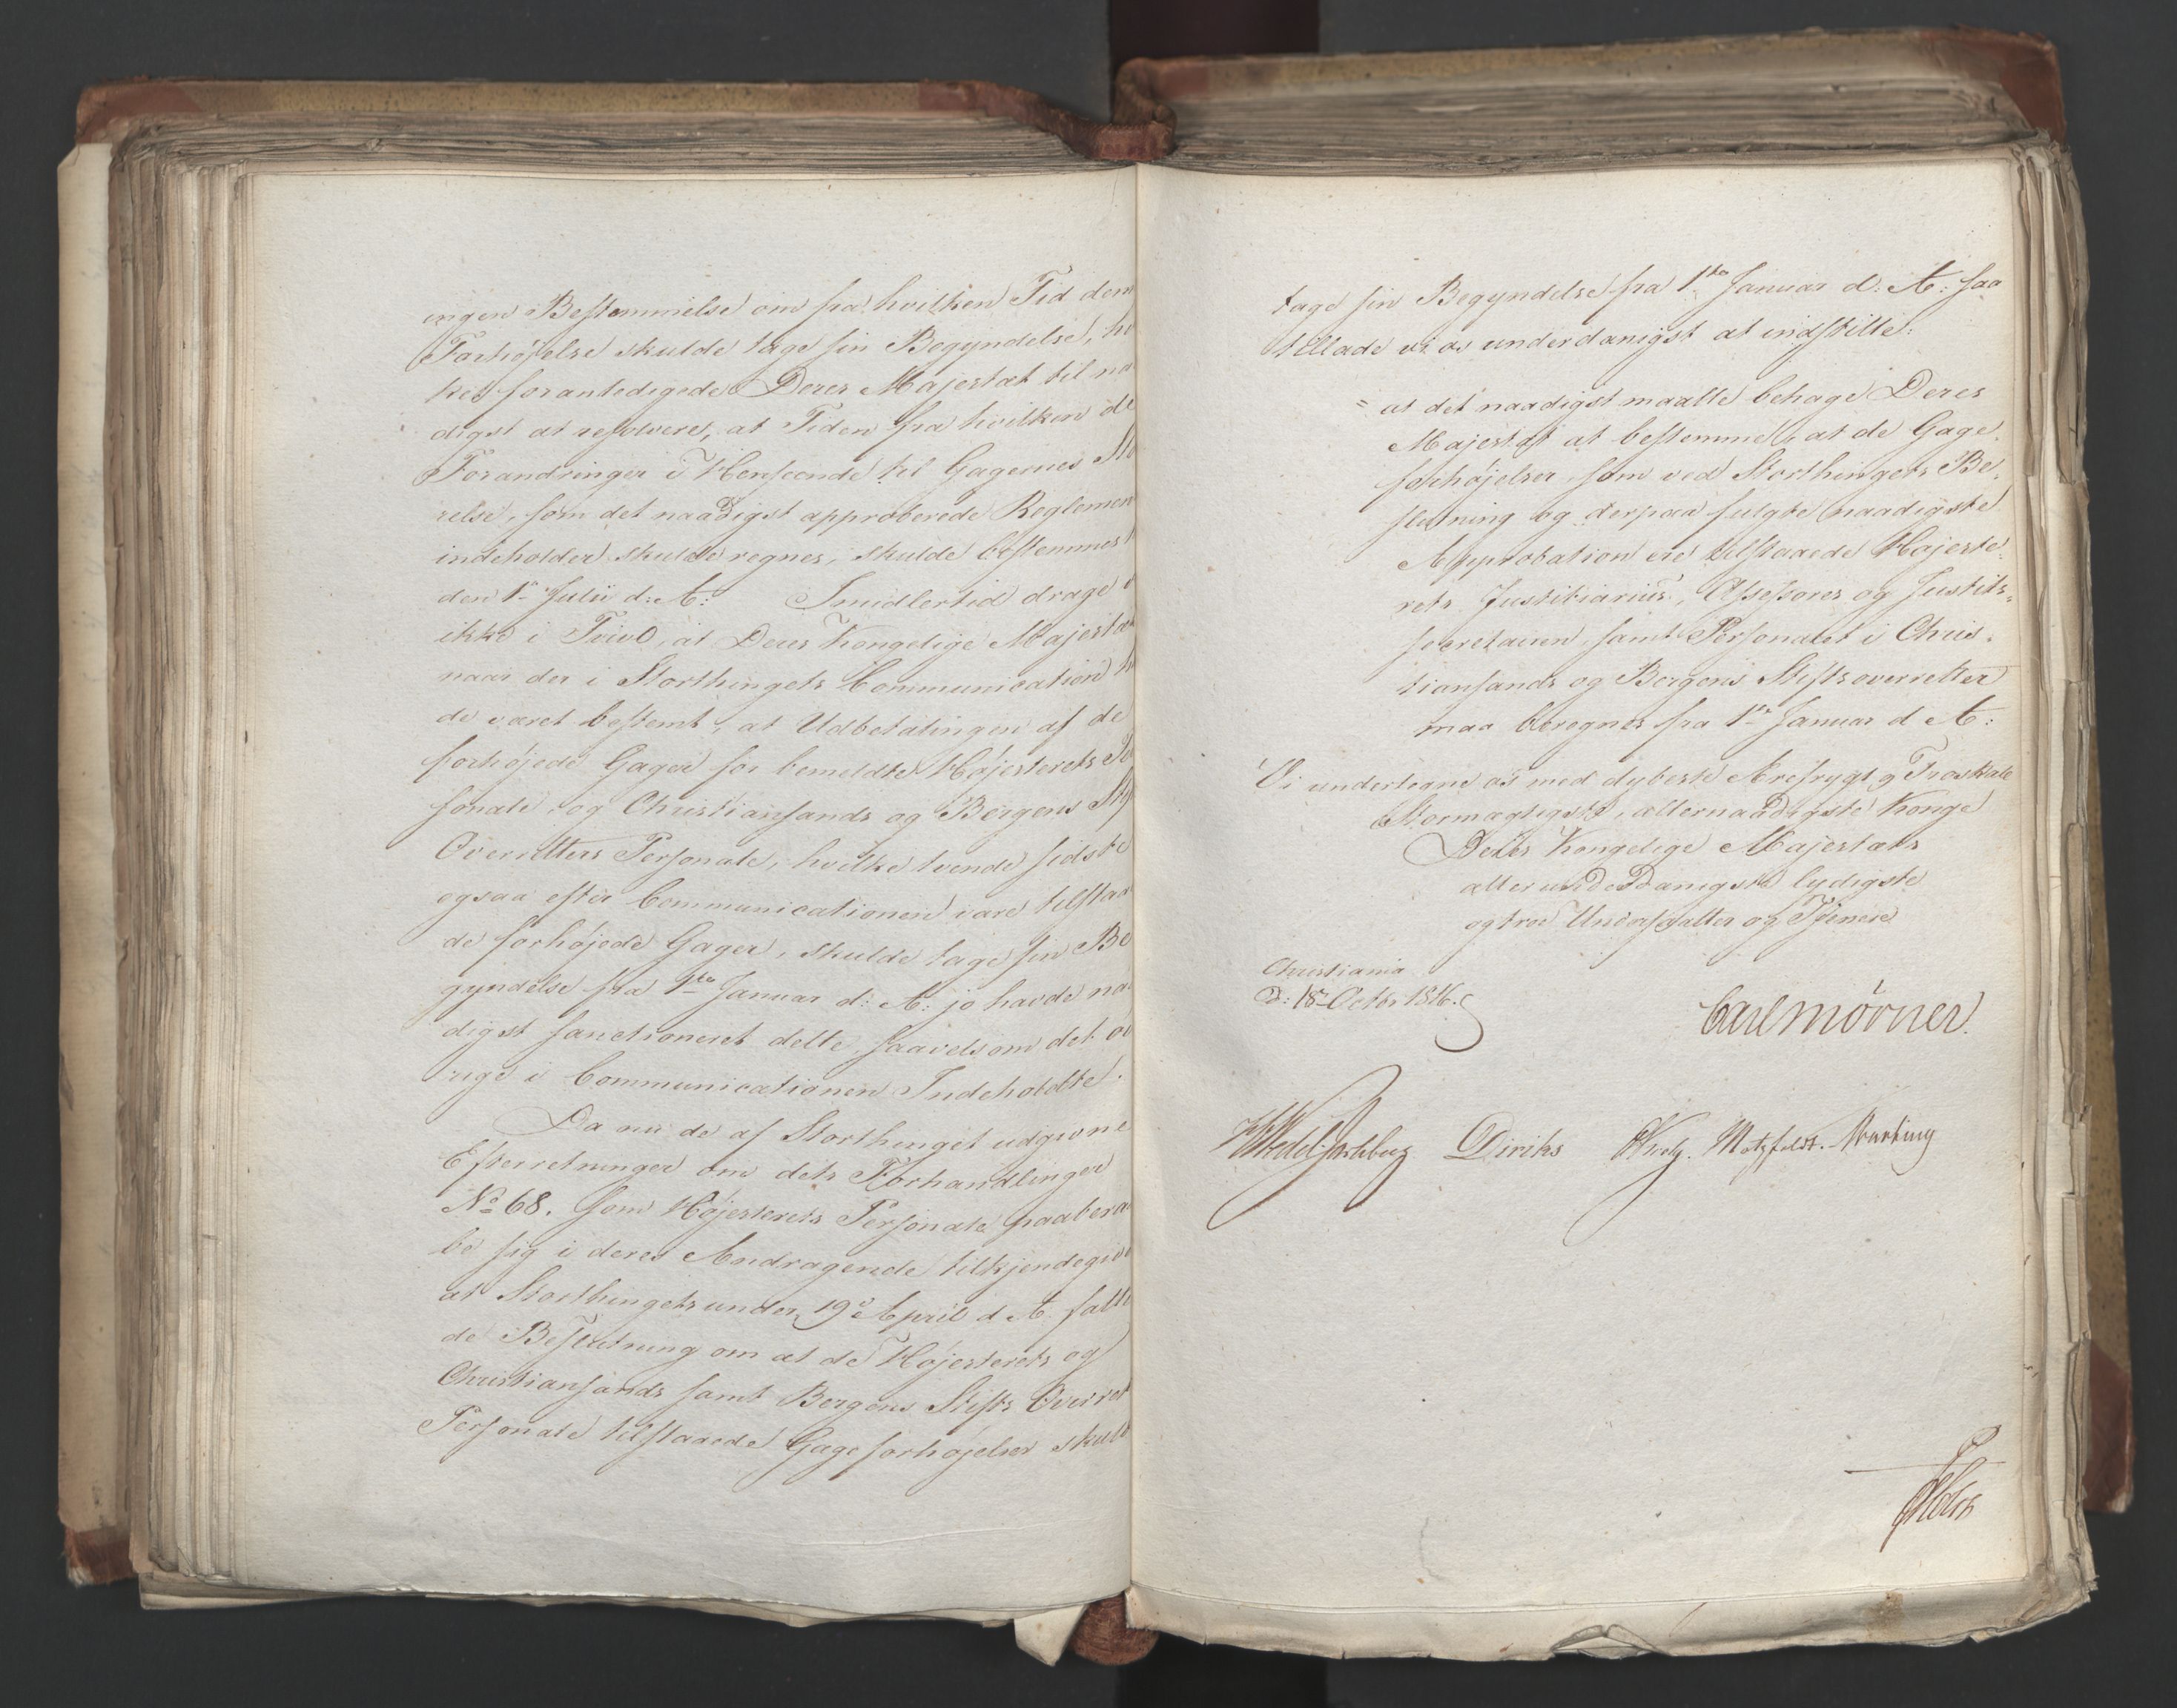 ingen Bestemmelse om fra hvilken Tid den
Forhøjelse skulde tage sin Begyndelse, hv
ket foranledigede Deres Majestæt til na
digst at resolvere, at Tiden fra hvilken de
Forandringer i Henseende til Gagernes Stø
relse, som det naadigst approberede Reglemen
indeholder skulde regnes, skulde bestemmes t
den 1ste Julii d: A: Imidlertid drage v
ikke i Tvivl, at Deres Kongelige Majestæ
naar der i Storthingets Communication ha
de været bestemt, at Udbetalingen af de
forhøjede Gager for bemeldte Højesterets Pe
sonale og Christiansands og Bergens Stif
Overretters Personale, hvilke tvende sidste
ogsaa efter Communicationen vare tilstaa
de forhøjede Gager, skulde tage sin Be
gyndelse fra 1ste Januar d: A: jo havde na
digst sanctioneret dette saavelsom det øv
rige i Communicationen Indeholdte.
Da nu de af Storthinget udgivne
Efterretninger om dets Forhandlinger
No 68. som Højesterets Personale paabera
be sig i deres Andragende tilkjendegive
at Storthingets under 19de April d A. fatte
de Beslutning om at de Højesterets og
Christiansands samt Bergens Stifts Overret
Personale tilstaaede Gageforhøjelser skuld
tage sin Begyndelse fra 1ste Januar d: A: saa
tillade vi os underdanigst at indstille:
= at det naadigst maatte behage Deres
Majestæt at bestemme, at de Gage
forhøjelser, som ved Storthingets Be
slutning og derpaa fulgte naadigste
Approbation ere tilstaaede Højeste
rets Justitiarius, Assessores og Justits=
secretairen, samt Personalet i Chris
tiansands og Bergens Stiftsoverretter
maa beregnes fra 1ste Januar d A:
Vi undertegne os med dybeste Ærefrygt og Troskab
Stormægtigste, allernaadigste Konge
Deres Kongelige Majestæts
allerunderdanigste lydigste
og troe Undersaatter og Tjenere
Christiania
D: 18de Octbr 1816.
Carl Mörner.
HWedelJarlsberg Diriks Krog. Motzfeldt.